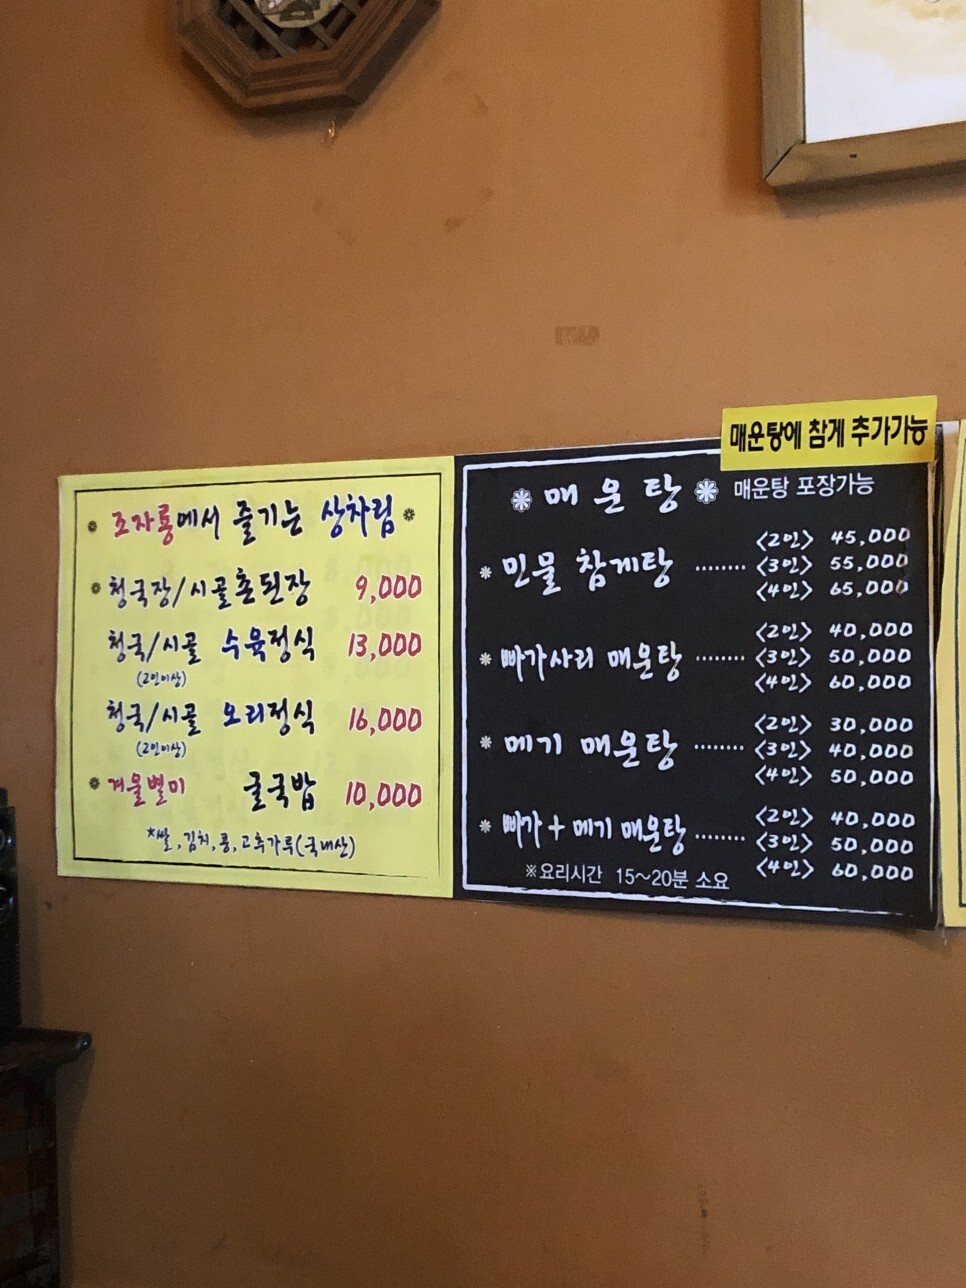 조자룡에서 즐기는 상차림
청국장/시골촌된장 9,000
청국/시골 수육정식 13,000
(2인이상)
청국/시골 오리정식 16,000
(2인이상)
겨울별미 굴국밥 10,000
*쌀, 김치, 콩, 고추가루(국내산)
매운탕에 참게 추가가능
매운탕 매운탕 포장가능
민물 참게탕 ········ <2인> 45,000
<3인> 55,000
<4인> 65,000
빠가사리 매운탕 ········ <2인> 40,000
<3인> 50,000
<4인> 60,000
메기 매운탕 ········ <2인> 30,000
<3인> 40,000
<4인> 50,000
빠가+메기 매운탕 ········ <2인> 40,000
<3인> 50,000
<4인> 60,000
※요리시간 15~20분 소요